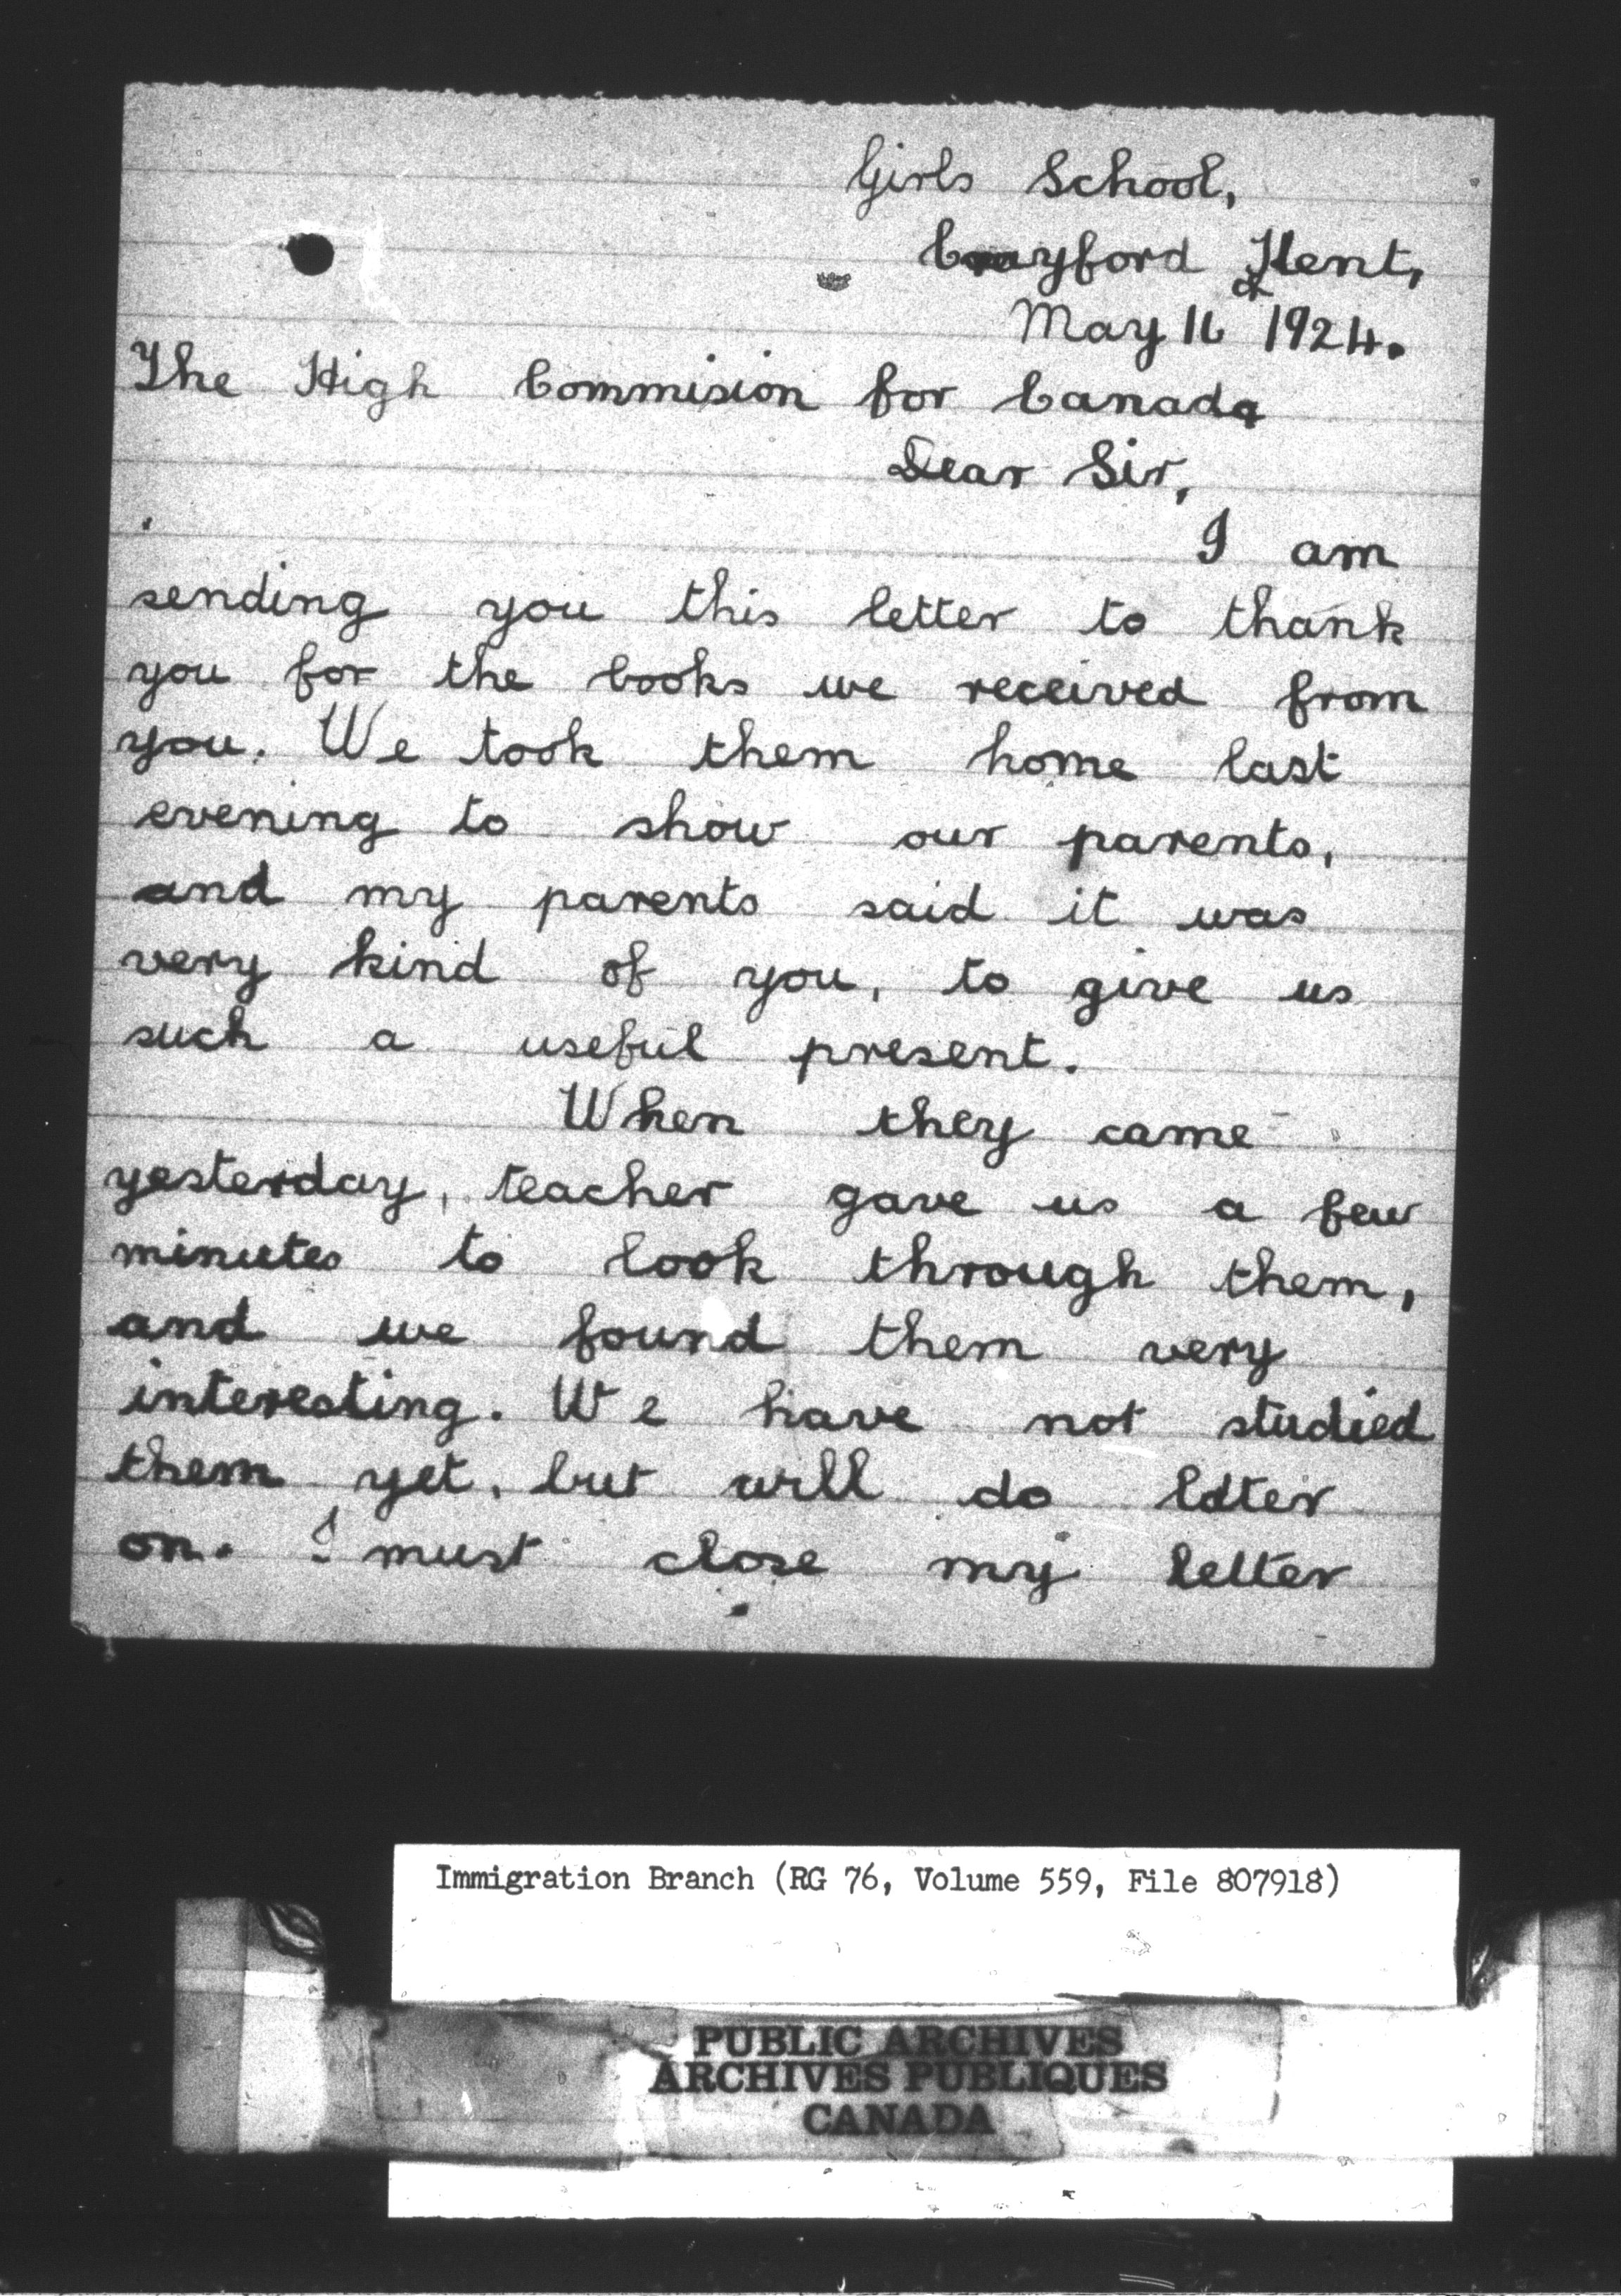 Girls School,
Crayford Kent,
May 16th 1924.
The High Commision for Canada
Dear Sir,
I am
sending you this letter to thank
you for the books we received from
you. We took them home last
evening to show our parents,
and my parents said it was
very kind of you, to give us
such a useful present.
When they came
yesterday, teacher gave us a few
minutes to look through them,
and we found them very
interesting. We have not studied
them yet, but will do later
on. I must close my letter
Immigration Branch (RG 76, Volume 559, File 807918)
PUBLIC ARCHIVES
ARCHIVES PUBLIQUES
CANADA